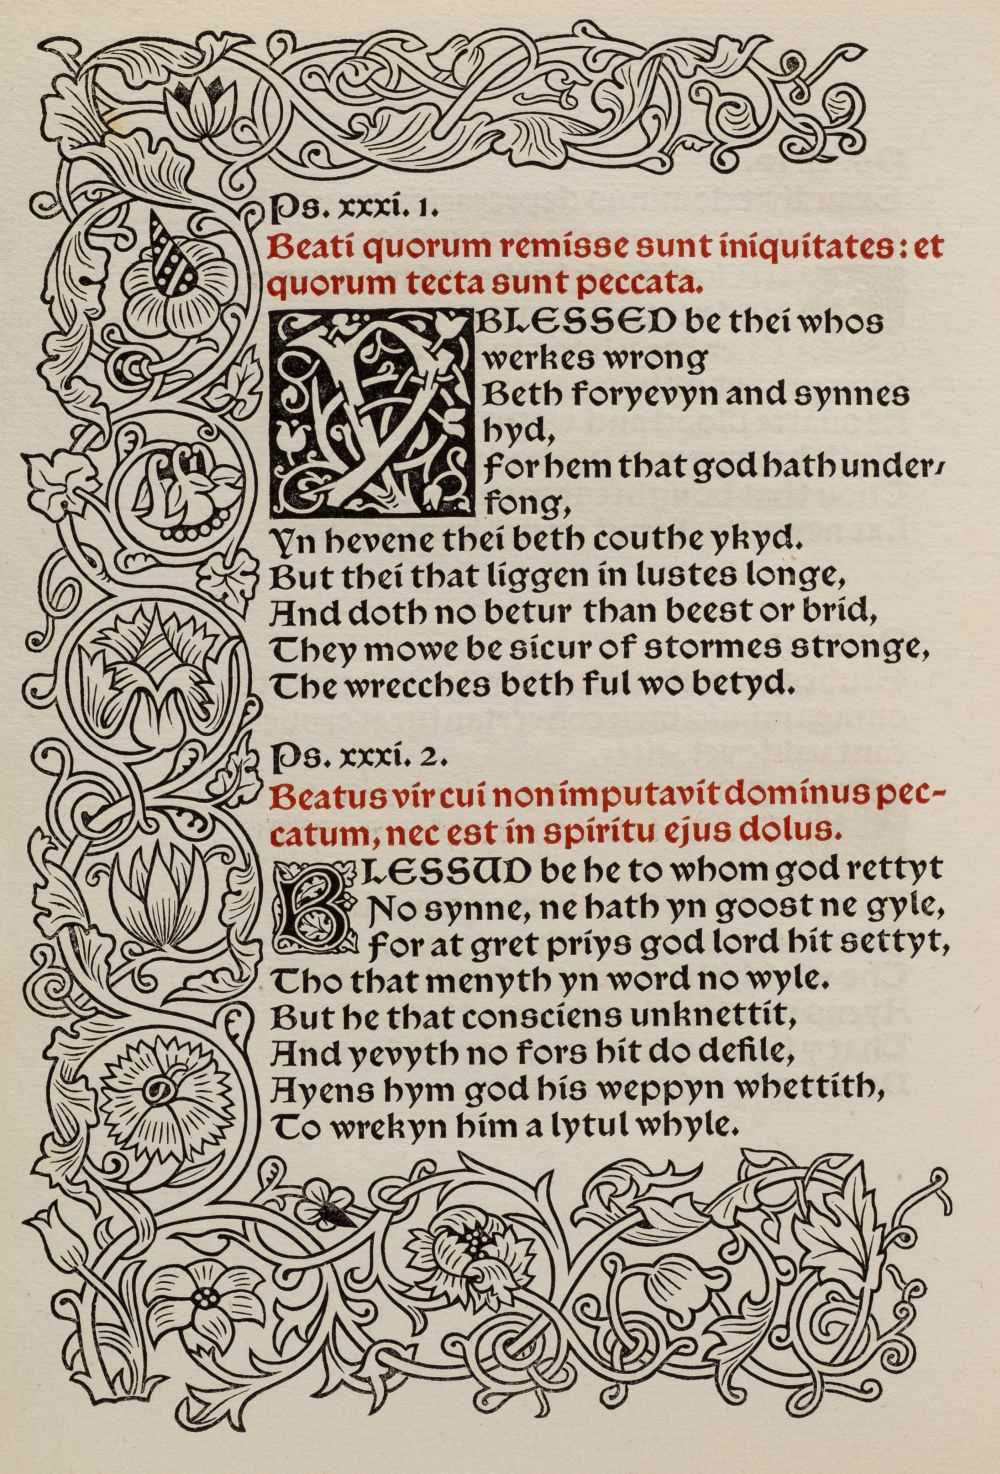 Ps. xxxi. 1.
Beati quorum remisse sunt iniquitates: et
quorum tecta sunt peccata.
YBLESSED be thei whos
werkes wrong
Beth foryevyn and synnes
hyd,
For hem that god hath under/
fong,
Yn hevene thei beth couthe ykyd.
But thei that liggen in lustes longe,
And doth no betur than beest or brid,
They mowe be sicur of stormes stronge,
The wrecches beth ful wo betyd.
Ps. xxxi. 2.
Beatus vir cui non imputavit dominus pec-
catum, nec est in spiritu ejus dolus.
BLESSUD be he to whom god rettyt
No synne, ne hath yn goost ne gyle,
For at gret priys god lord hit settyt,
Tho that menyth yn word no wyle.
But he that consciens unknettit,
And yevyth no fors hit do defile,
Ayens hym god his weppyn whettith,
To wrekyn him a lytul whyle.